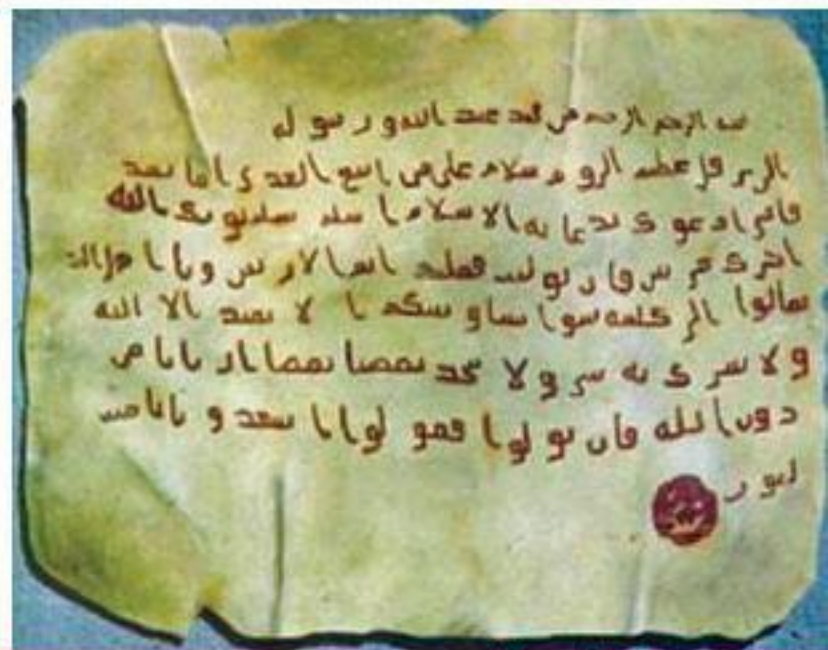 بسم الرحمن الرحيم من محمد عبد الله و رسوله
الى هرقل عظيم الروم سلام على من اتبع الهدى اما بعد
فانى ادعوك بدعاية الاسلام اسلم تسلم يوتك الله
اجرك مرتين فان توليت فعليك اثم الاريسين ويا اهل
تعالوا الى كلمة سوا بيننا وبينكم ا لا نعبد الا الله
ولا نشرك به ولا يتخذ بعضنا بعضا اربابا من
دون الله فان تولوا فقولوا اشهدوا بانا مسـ
لمون